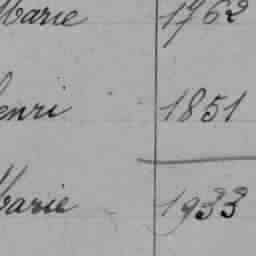 Marie 1762
enri 1851
Marie 1933